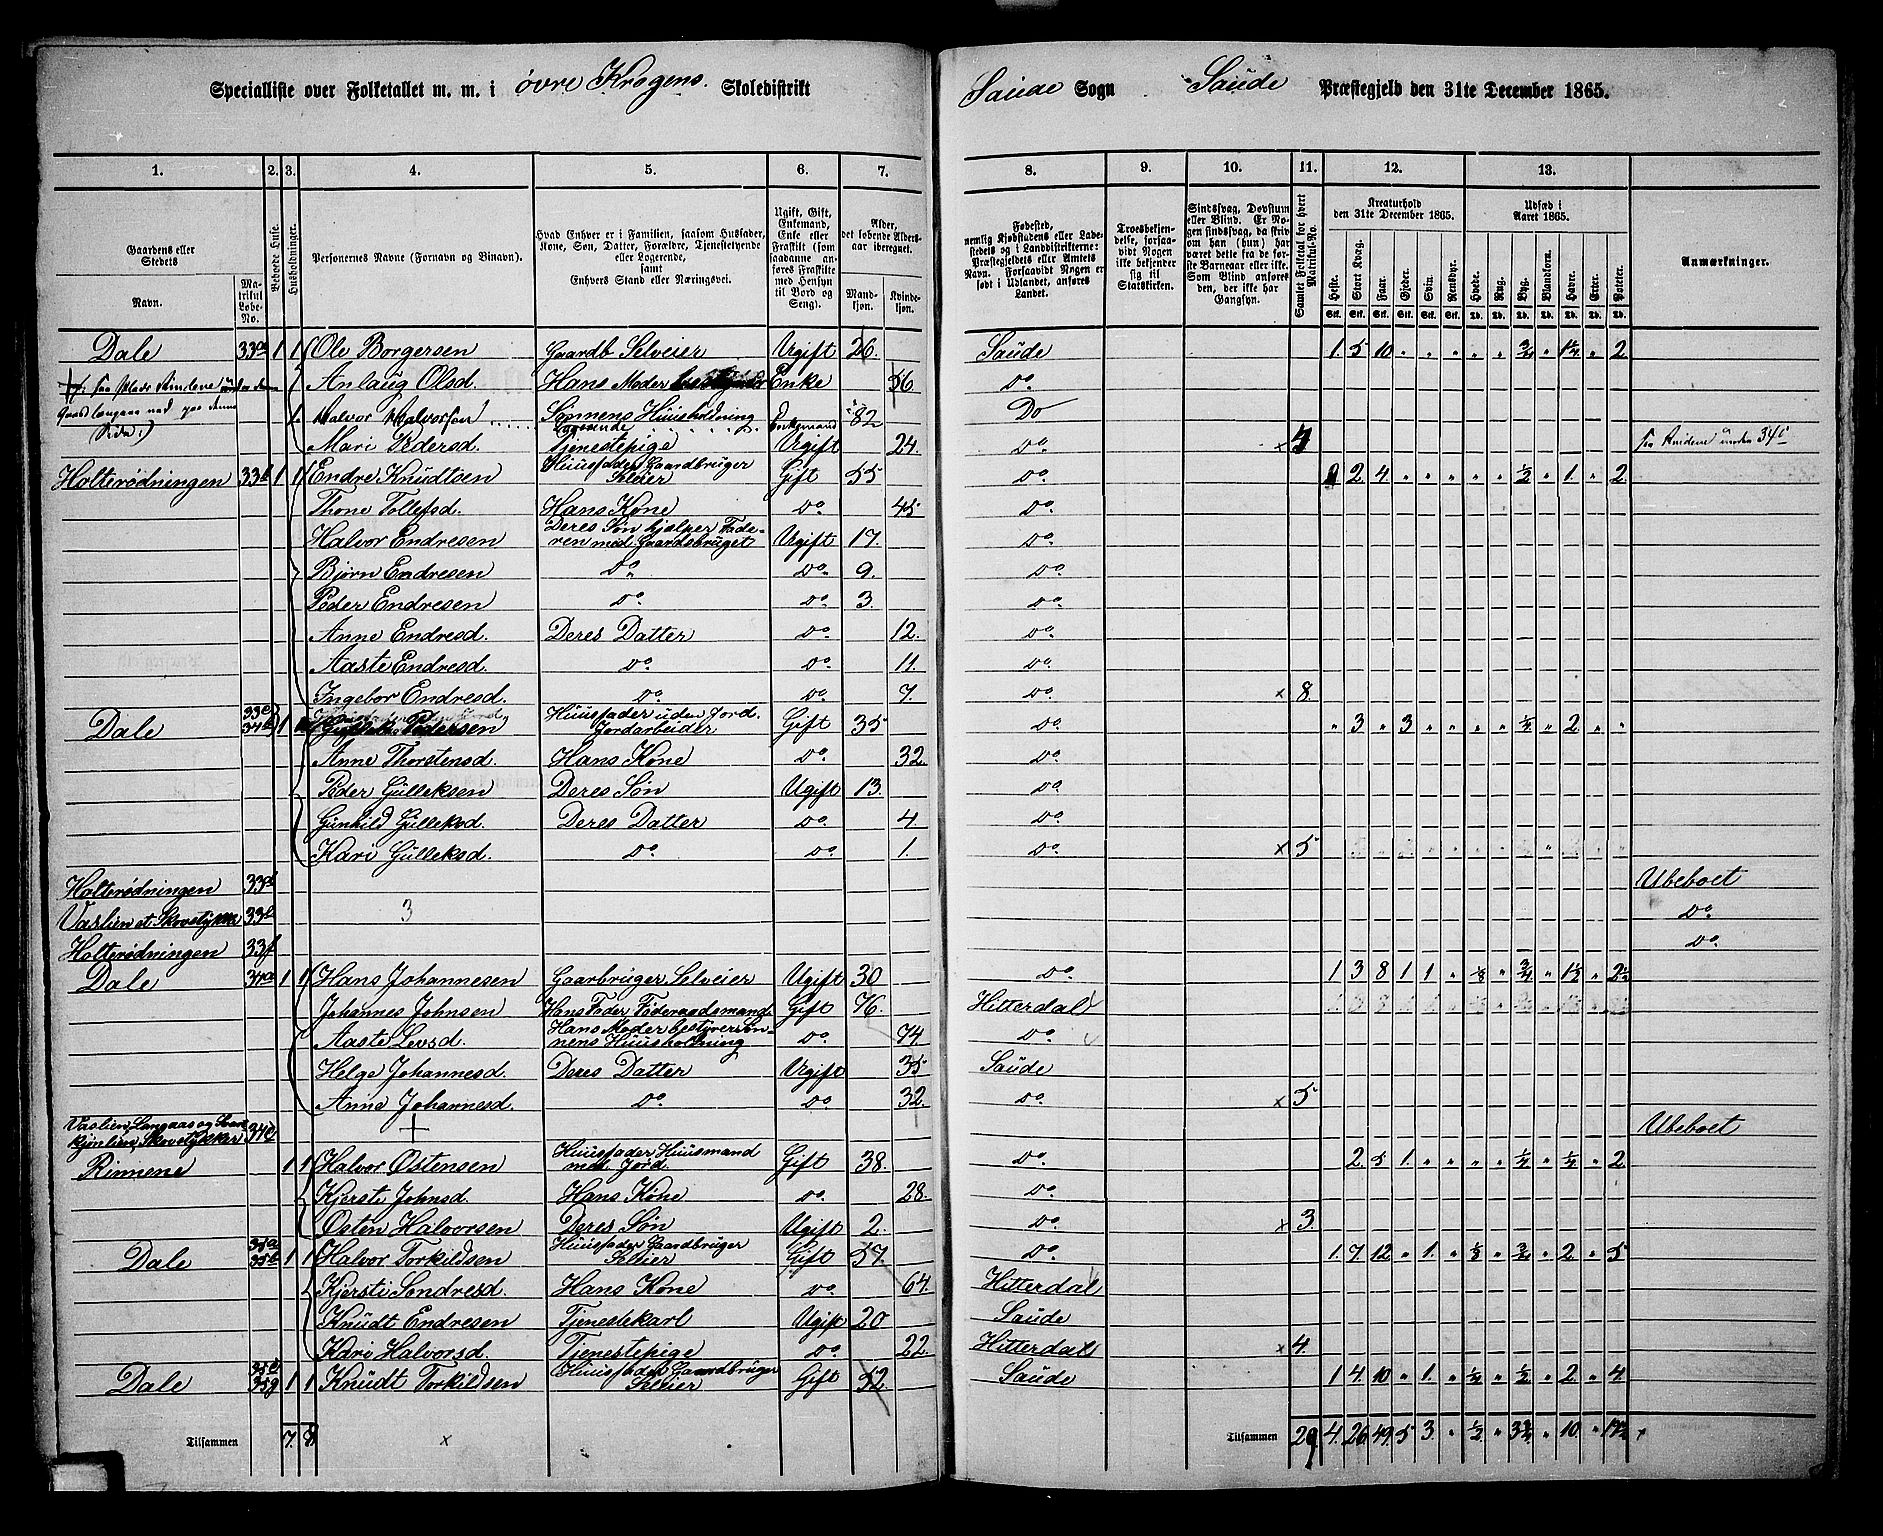 Specialliste over Folketallet m. m. i øvre Krogens. Skoledistrikt Saude Sogn Saude Præstegjeld den 31te December 1865.
1. 2. 3. 4. 5. 6. 7. 8. 9. 10. 11. 12. 13.
Gaardens eller Stedets
Navn.
Matrikul Løbe-No.
Beboede Huse.
Husholdninger.
Personernes Navne (Fornavn og Binavn).
Hvad Enhver er i Familien, saasom Husfader, Kone, Søn, Datter, Forældre, Tjenestetyende eller Logerende, samt Enhvers Stand eller Næringsvei.
Ugift, Gift, Enkemand, Enke eller Fraskilt (som saadanne anføres Fraskilte med Hensyn til Bord og Seng).
Alder, det løbende Alders-aar iberegnet.
Mandkjøn. Kvindekjøn.
Fødested, nemlig Kjøbstadens eller Ladestedets og i Landdistrikterne: Præstegjeldets eller Amtets Navn. Forsaavidt Nogen er født i Udlandet, anføres Landet.
Troesbekjendelse, forsaavidt Nogen ikke bekjender sig til Statskirken.
Sindssvag, Døvstum eller Blind. Er Nogen sindssvag, da skrives om han (hun) har været dette fra de første Barneaar eller ikke. Som Blind anføres den, der ikke har Gangsyn.
Samlet Folketal for hvert Matrikul-No.
Kreaturhold den 31te December 1865.
Heste. Stort Kvæg. Faar. Gjeder. Svin. Rensdyr.
Udsæd i Aaret 1865.
Hvede. Rug. Byg. Blandkorn. Havre. Erter. Poteter.
Anmærkninger.
Dale 33a 1 1 Ole Borgersen Gaardb Selveier Ugift 26. Saude 1. 5 10 " " " " " 3/4 " 1 1/4 " 2
Anlaug Olsd. Hans Moder Enke 56 Do.
Halvor Halvorsen Logerende Enkemand 82 Do
Sønnens Huusholdning
Mari Pedersd. Tjenestepige Ugift 24. Do. x 4
Holterødningen 33b 1 1 Endre Knudtsen Huusfader Gaardbruger Seleier Gift 55 Do. 2 4. " " " " " 1/2 " 1. " 2
Thone Tollefsd. Hans Kone Do. 45 Do.
Halvor Endresen Deres Søn hjelper Faderen med Gaardsbruget Ugift 17. Do.
Bjørn Endresen Do. Do. 9. Do.
Peder Endresen Do. Do. 3. Do.
Anne Endresd. Deres Datter Do. 12. Do.
Aaste Endresd. Do. Do. 11. Do.
Ingebor Endresd. Do. Do. 7. Do. x 8.
Dale 33c 34b 1 Pedersen Huusfader uden Jord. Jordarbeider Gift 35 Do. " 3 " 3 " " " " 1/4 " 2. " "
Anne Thorstensd. Hans Kone Do. 32. Do.
Peder Gulleksen Deres Søn Ugift 13. Do.
Gunhild Gulleksd. Deres Datter Do. 4 Do.
Kari Gulleksd. Do. Do. 1. Do. x 5
Holterødningen 33d Ubeboet
Vaslien et Skovstykke 33e 3 Do.
Holterødningen 33f Do.
Dale 34a 1 1 Hans Johannesen Gaarbruger Selveier Ugift 30 Do. 1 3 8 1 1 " 1/8 " 3/4 " 1 1/2 " 2 1/2
Johannes Johnsen Hans Fader Føderaadsmand Gift 76. Hitterdal
Aaste Levsd. Hans Moder bestyrer Sønnens Huusholdning Do. 74 Do.
Helge Johannesd. Deres Datter Ugift 35 Saude
Anne Johannesd. Do. Do. 32. Do. x 5
Vaslien, Langaas og Skovstykker 34c Ubeboet
Rinnene 1 1 Halvor Østensen Huusfader Huusmand med Jord. Gift 38. Do. 2. 5 1. " " " " 1/4 " 1/4 " 2
Kjersti Johnsd. Hans Kone Do. 28. Do.
Østen Halvorsen Deres Søn Ugift 2. Do. x 3.
Dale 35a 35b 1 1 Halvor Torkildsen Huusfader Gaardbruger Seleier Gift 57. Do. 1. 7. 12 " 1. " 1/8 " 3/4 " 2 " 5
Kjersti Sondresd. Hans Kone Do. 64. Hitterdal
Knudt Endresen Tjenestekarl Ugift 20 Saude
Kari Halvorsd. Tjenestepige Do. 22. Hitterdal x 4.
Dale 35c 35g 1 1 Knudt Torkildsen Huusfader Gaardbruger Seleier Gift 52 Saude 1 4. 10 " 1. " 1/4 " 1/2 " 2 " 4
Tilsammen 7. 8 x Tilsammen 29 4. 26 49. 5 3. " 1/2 " 3 3/4 " 10. " 17 1/2